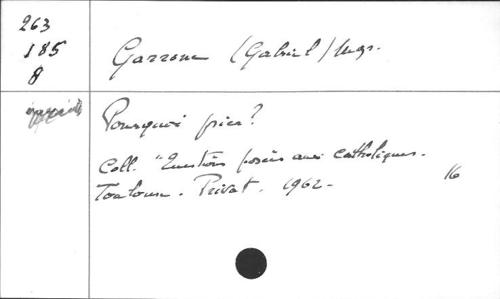 263
185
8
Garrone (Gabriel) Mgr.
Pourquoi prier?
Coll. "Questions posées aux catholiques.
Toulouse. Privat. 1962.
16